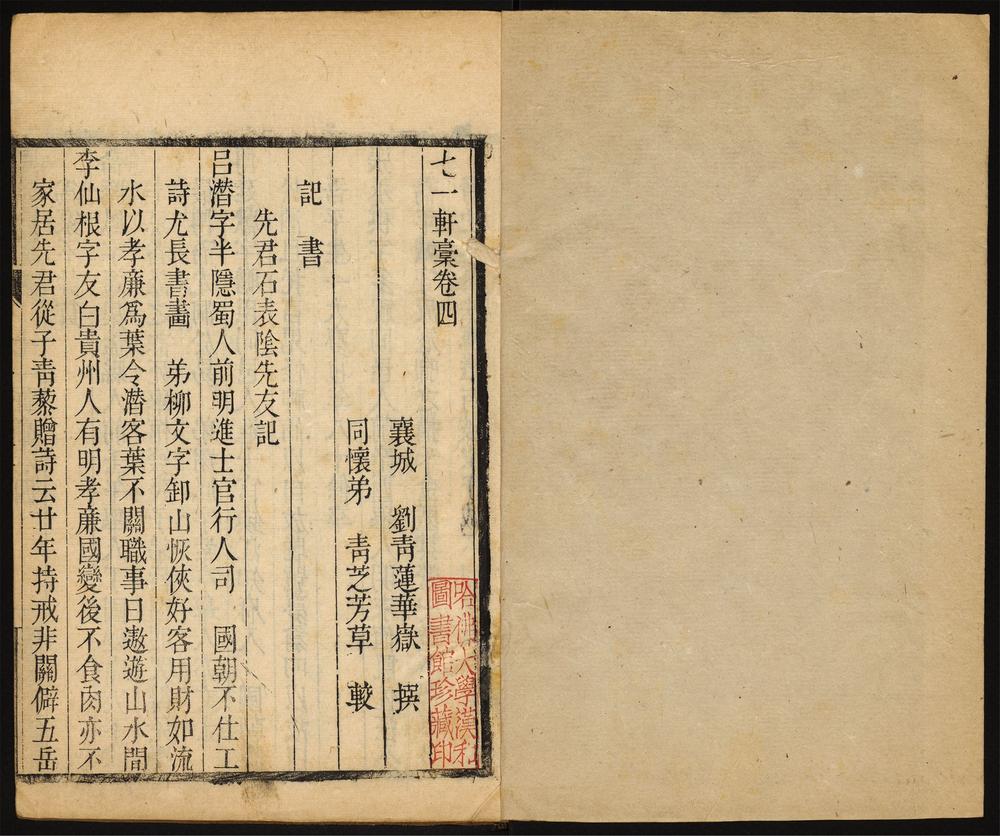 七一軒藁卷四
襄城 劉青蓮華嶽 撰
同懷弟 青芝芳草 較
記 書
先君石表陰先友記
呂潛字半隱蜀人前明進士官行人司 國朝不仕工
詩尤長書畵 弟柳文字卸山恢俠好客用財如流
水以孝廉爲葉令潛客葉不關職事日遨遊山水間
李仙根字友白貴州人有明孝廉國變後不食肉亦不
家居先君從子青藜贈詩云廿年持戒非關僻五岳
哈佛大學漢和
圖書館珍藏印